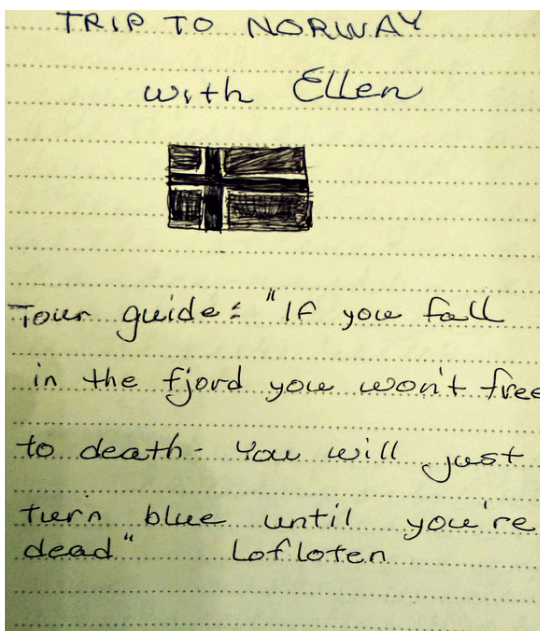 TRIP TO NORWAY
with Ellen
Tour guide: "If you fall
in the fjord you won't free
to death - You will just
turn blue until you're
dead" Lofloten